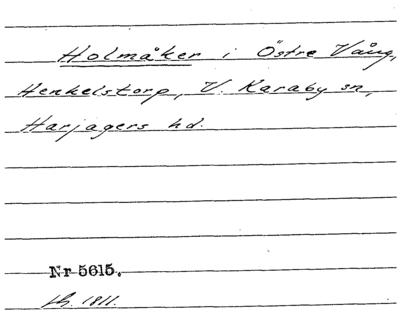 Holmåker i Östre Vång,
Henkelstorp, V. Karaby sn,
Harjagers hd.
Nr 5615.
1811.